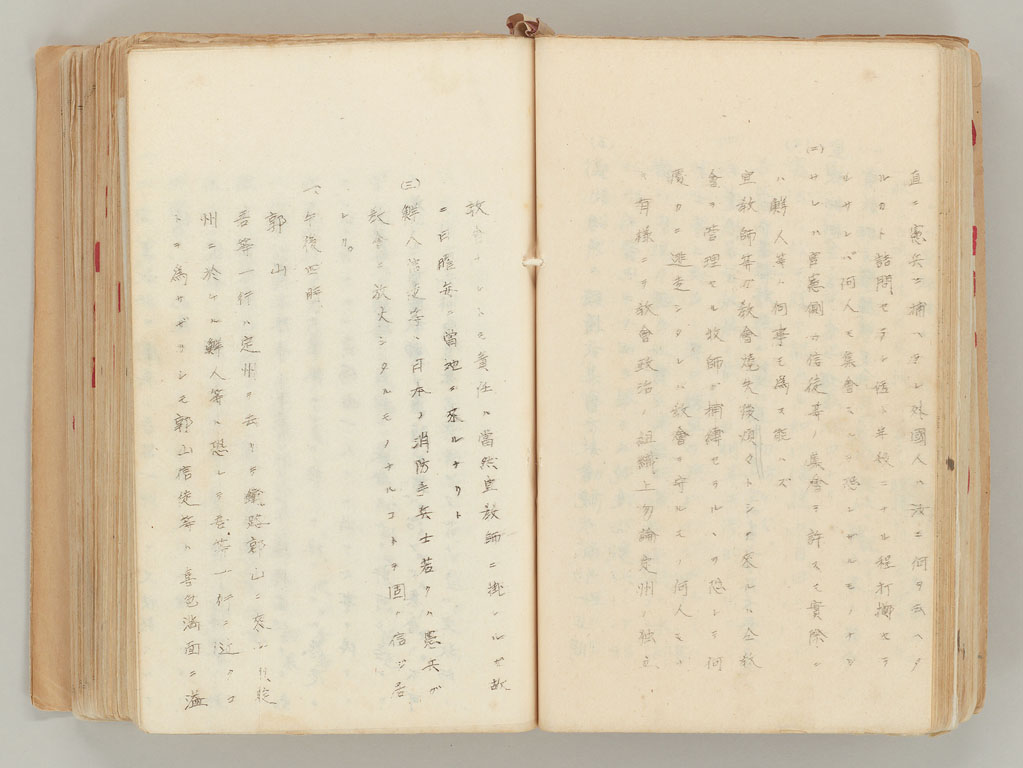 直ニ憲兵ニ捕ヘラレ外國人ハ汝ニ何ヲ云ヘタ
ルカト詰問セラレ半殺ニナル程打擲セラ
ルサレバ何人モ集會ニ隠レザルモノナシ
(二)サレハ官憲側カ信徒等ノ集會ヲ許スモ實際ハ
ハ鮮人等ハ何事モ為ス能ハズ
宣教師等ガ教會燒失後煩々トシテ來ルハ全教
會ヲ管理セル牧師ガ捕縛セラレ又ハ隠レテ何
處カニ逃走シタレハ教會ヲ守ルモノ何人モナ
キ有様ニテ教會政治ノ組織上勿論定州ハ獨立
教會ナレトモ責任ハ當然宣教師ニ掛レルガ故
ニ日曜毎ニ當地ニ來ルナリト
(三)鮮人信徒等ハ日本ノ消防手兵士若クハ憲兵ガ
教會ニ放火シタルモノナルコトヲ固ク信ジ居
レリ。
一、午後四時
郭山
吾等一行ハ定州ヲ去リテ鐵路郭山ニ來ル
州ニ於ケル鮮人等ハ恐レテ吾等一行ニ近クコ
トヲ為サザリシモ郭山信徒等ハ喜色滿面ニ溢